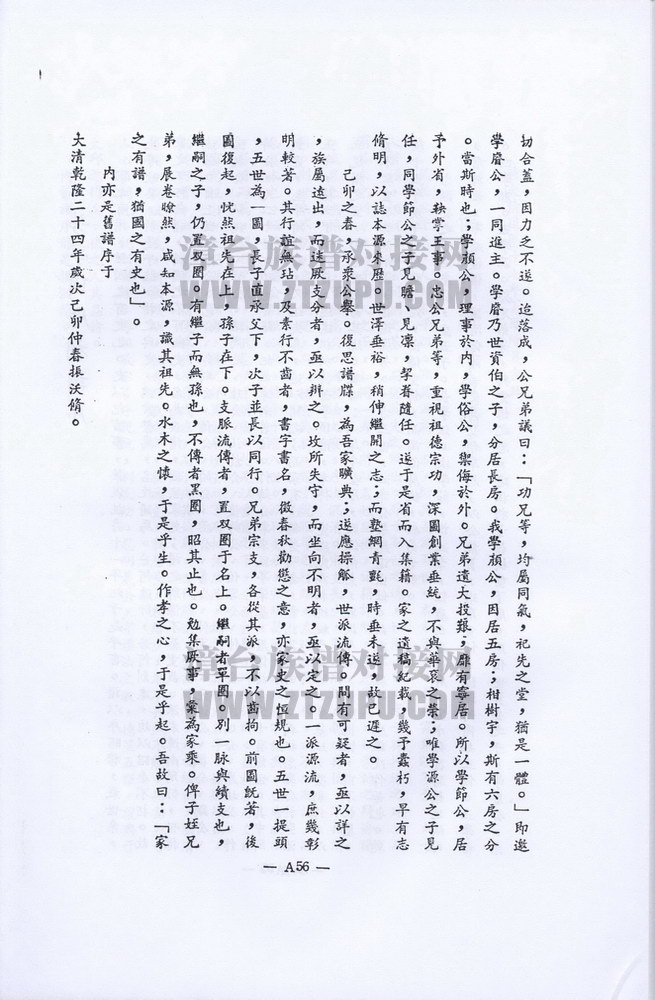 切合蓋，因力乏不遂。迨落成，公兄弟議曰：「功兄等，均屬同氣，祀先之堂，猶是一體。」即邀
學磨公，一同進主。學磨乃世資伯之子，分居長房。我學顏公，因居五房；柑樹宇，斯有六房之分
。當斯時也；學顏公，理事於內，學俗公，禦侮於外。兄弟遺大投艱，靡有寧居。所以學節公，居
予外省，鞅掌王事。忠公兄弟等，重視祖德宗功，深圖創業垂統，不與華袞之榮；唯學源公之子見
任，同學節公之子見瞻、見凜，挈眷隨任。遂于是省而入集籍。家之遺稿紀載，幾予蠹朽，早有志
脩明，以誌本源來歷。世澤垂裕，稍伸繼開之志；而塾網青氈，時垂未遂，故已遲之。
己卯之春，承衆公舉。復思譜牒，為吾家曠典；遂應操觚，世派流傳。間有可疑者，亟以詳之
，族屬遠出，而迷厥支分者，亟以辨之。坟所失守，而坐向不明者，亟以定之。一派源流，庶幾彰
明較著。其行誼無玷，及素行不齒者，書字書名，倣春秋勸懲之意，亦家史之恒規也。五世一提頭
，五世為一圖，長子直承父下，次子並長以同行。兄弟宗支，各從其派，不以齒拘。前圖既著，後
圖復起，恍然祖先在上，孫子在下。支脈流傳者，置双圈于名上。繼嗣者單圈。別一脉與續支也，
繼嗣之子，仍置双圈。有繼子而無孫也，不傳者黑圈，昭其止也。勉集厥事，彙為家乘。俾子姪兄
弟，展卷瞭然，咸知本源，識其祖先。水木之懷，于是乎生。作孝之心，于是乎起。吾故曰：「家
之有譜，猶國之有史也」。
內亦是舊譜序于
大清乾隆二十四年歲次己卯仲春振沃脩。
— A56 —
漳台族谱对接网
WWW.ZTZUPU.COM
漳台族谱对接网
WWW.ZTZUPU.COM